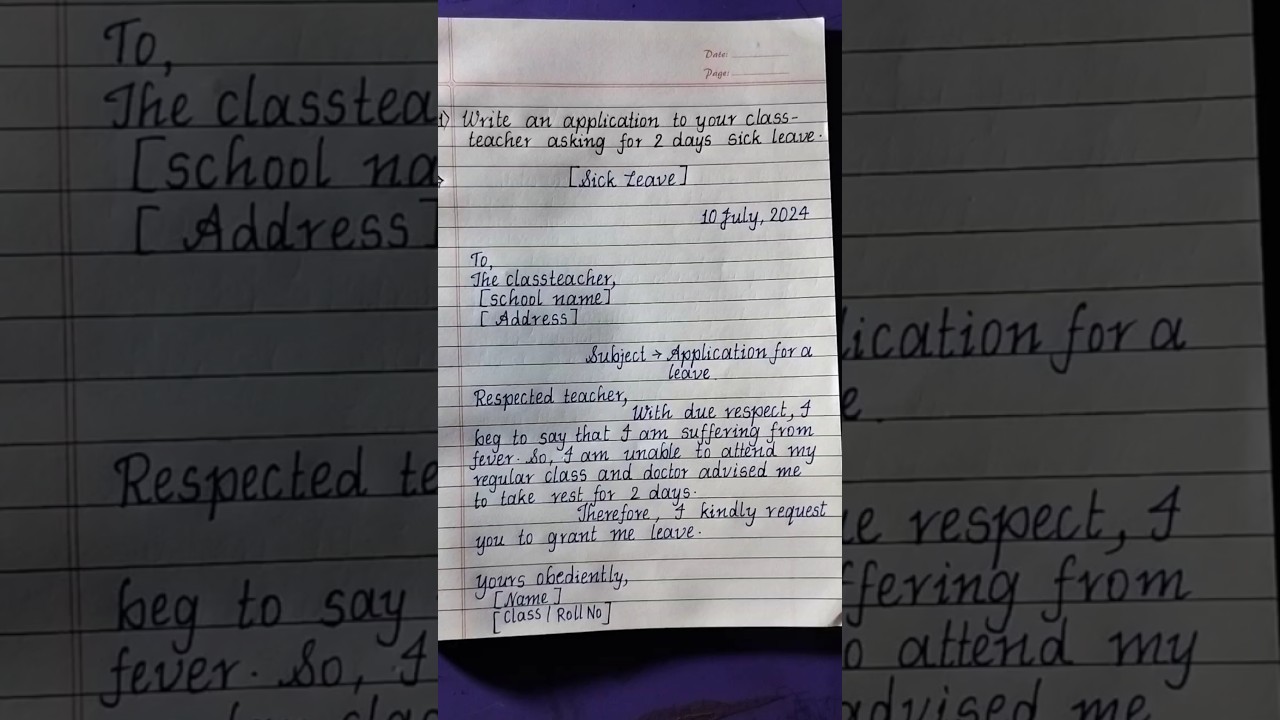 Date:
Page:
1) Write an application to your class-
teacher asking for 2 days sick leave.
[Sick Leave]
10 July, 2024
To,
The classteacher,
[school name]
[Address]
Subject → Application for a
leave
Respected teacher,
With due respect, I
beg to say that I am suffering from
fever. So, I am unable to attend my
regular class and doctor advised me
to take rest for 2 days.
Therefore, I kindly request
you to grant me leave.
yours obediently,
[Name]
[Class / Roll No]